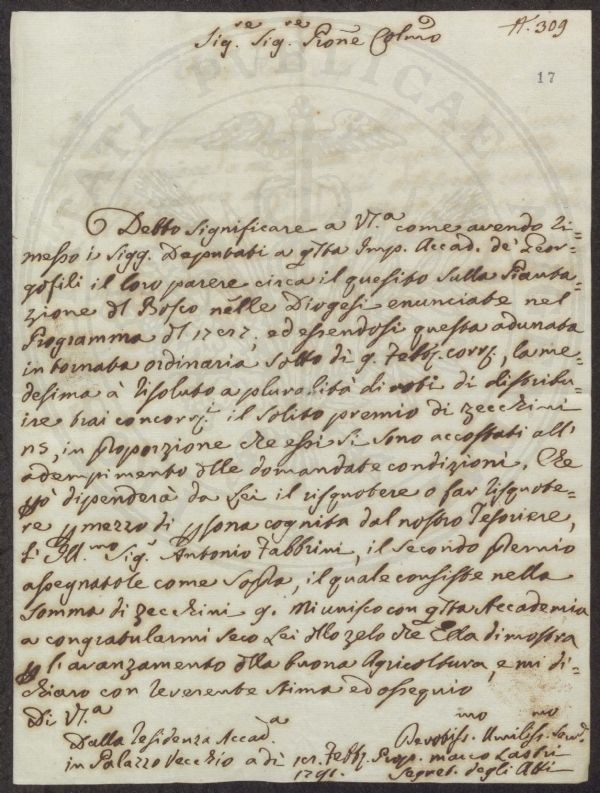 A. 309
Sig.re Sig.re Prone Colmo
17
Debbo significare a VS.a come avendo ri=
messo i Sigg. Deputati a qsta Imp. Accad. de' Geor=
gofili il loro parere circa il quesito sulla Pianta=
zione dl Bosco nelle Diogesi enunciate nel
Programma dl ed essendosi questa adunata
in tornata ordinaria sotto dì 9. Febb. corr., la me=
desima à risoluto a pluralità di voti di distribu=
ire trai concorr.i il solito premio di zecchini
in proporzione che essi si sono accostati all'
adempimento dlle domandate condizioni. Che
pò dipenderà da Lei il risquotere o far risquote=
re p mezzo di psona cognita dal nostro Tesoriere,
l'Ill.mo Sig. Antonio Fabbrini, il secondo premio
assegnatole come sopra, il quale consiste nella
somma di zecchini 9. Mi unisco con qsta Accademia
a congratularmi seco Lei dllo zelo che Ella dimostra
p l'avanzamento dlla buona Agricoltura, e mi di=
chiaro con reverente stima ed ossequio
Di VS.a
Dalla Residenza Accad.a
in Palazzo Vecchio a dì Febb. 1791.
Devotiss.mo Umiliss.mo Serv.
Prop. Marco Lastri
Segret. degli Atti